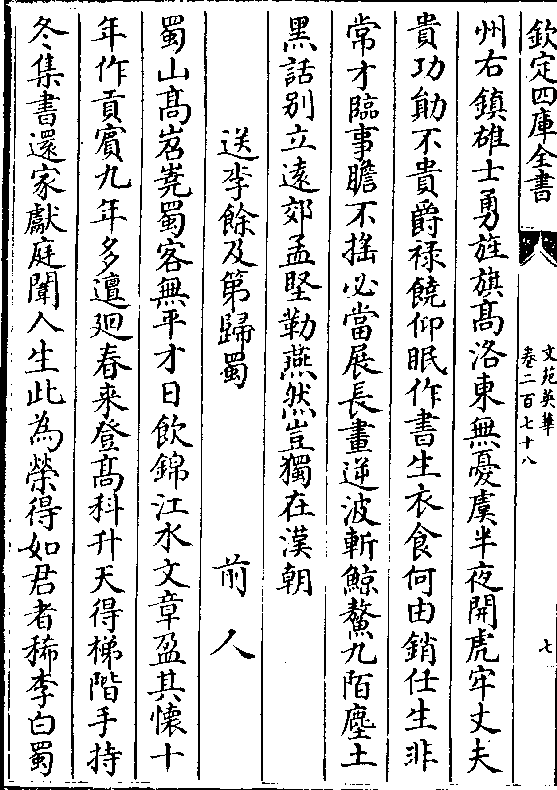 欽定四庫全書
文苑英華
卷二百七十八
七
州右鎮雄士勇旌旗髙洛東無憂虞半夜開虎牢丈夫
貴功勛不貴爵禄饒仰眠作書生衣食何由銷任生非
常才臨事膽不揺必當展長畫逆波斬鯨鰲九陌塵土
黑話别立遠郊孟堅勒燕然豈獨在漢朝
送李餘及第歸蜀 前人
蜀山髙岧嶤蜀客無平才日飲錦江水文章盈其懷十
年作貢賔九年多邅廻春来登髙科升天得梯階手持
冬集書還家獻庭闈人生此為榮得如君者稀李白蜀